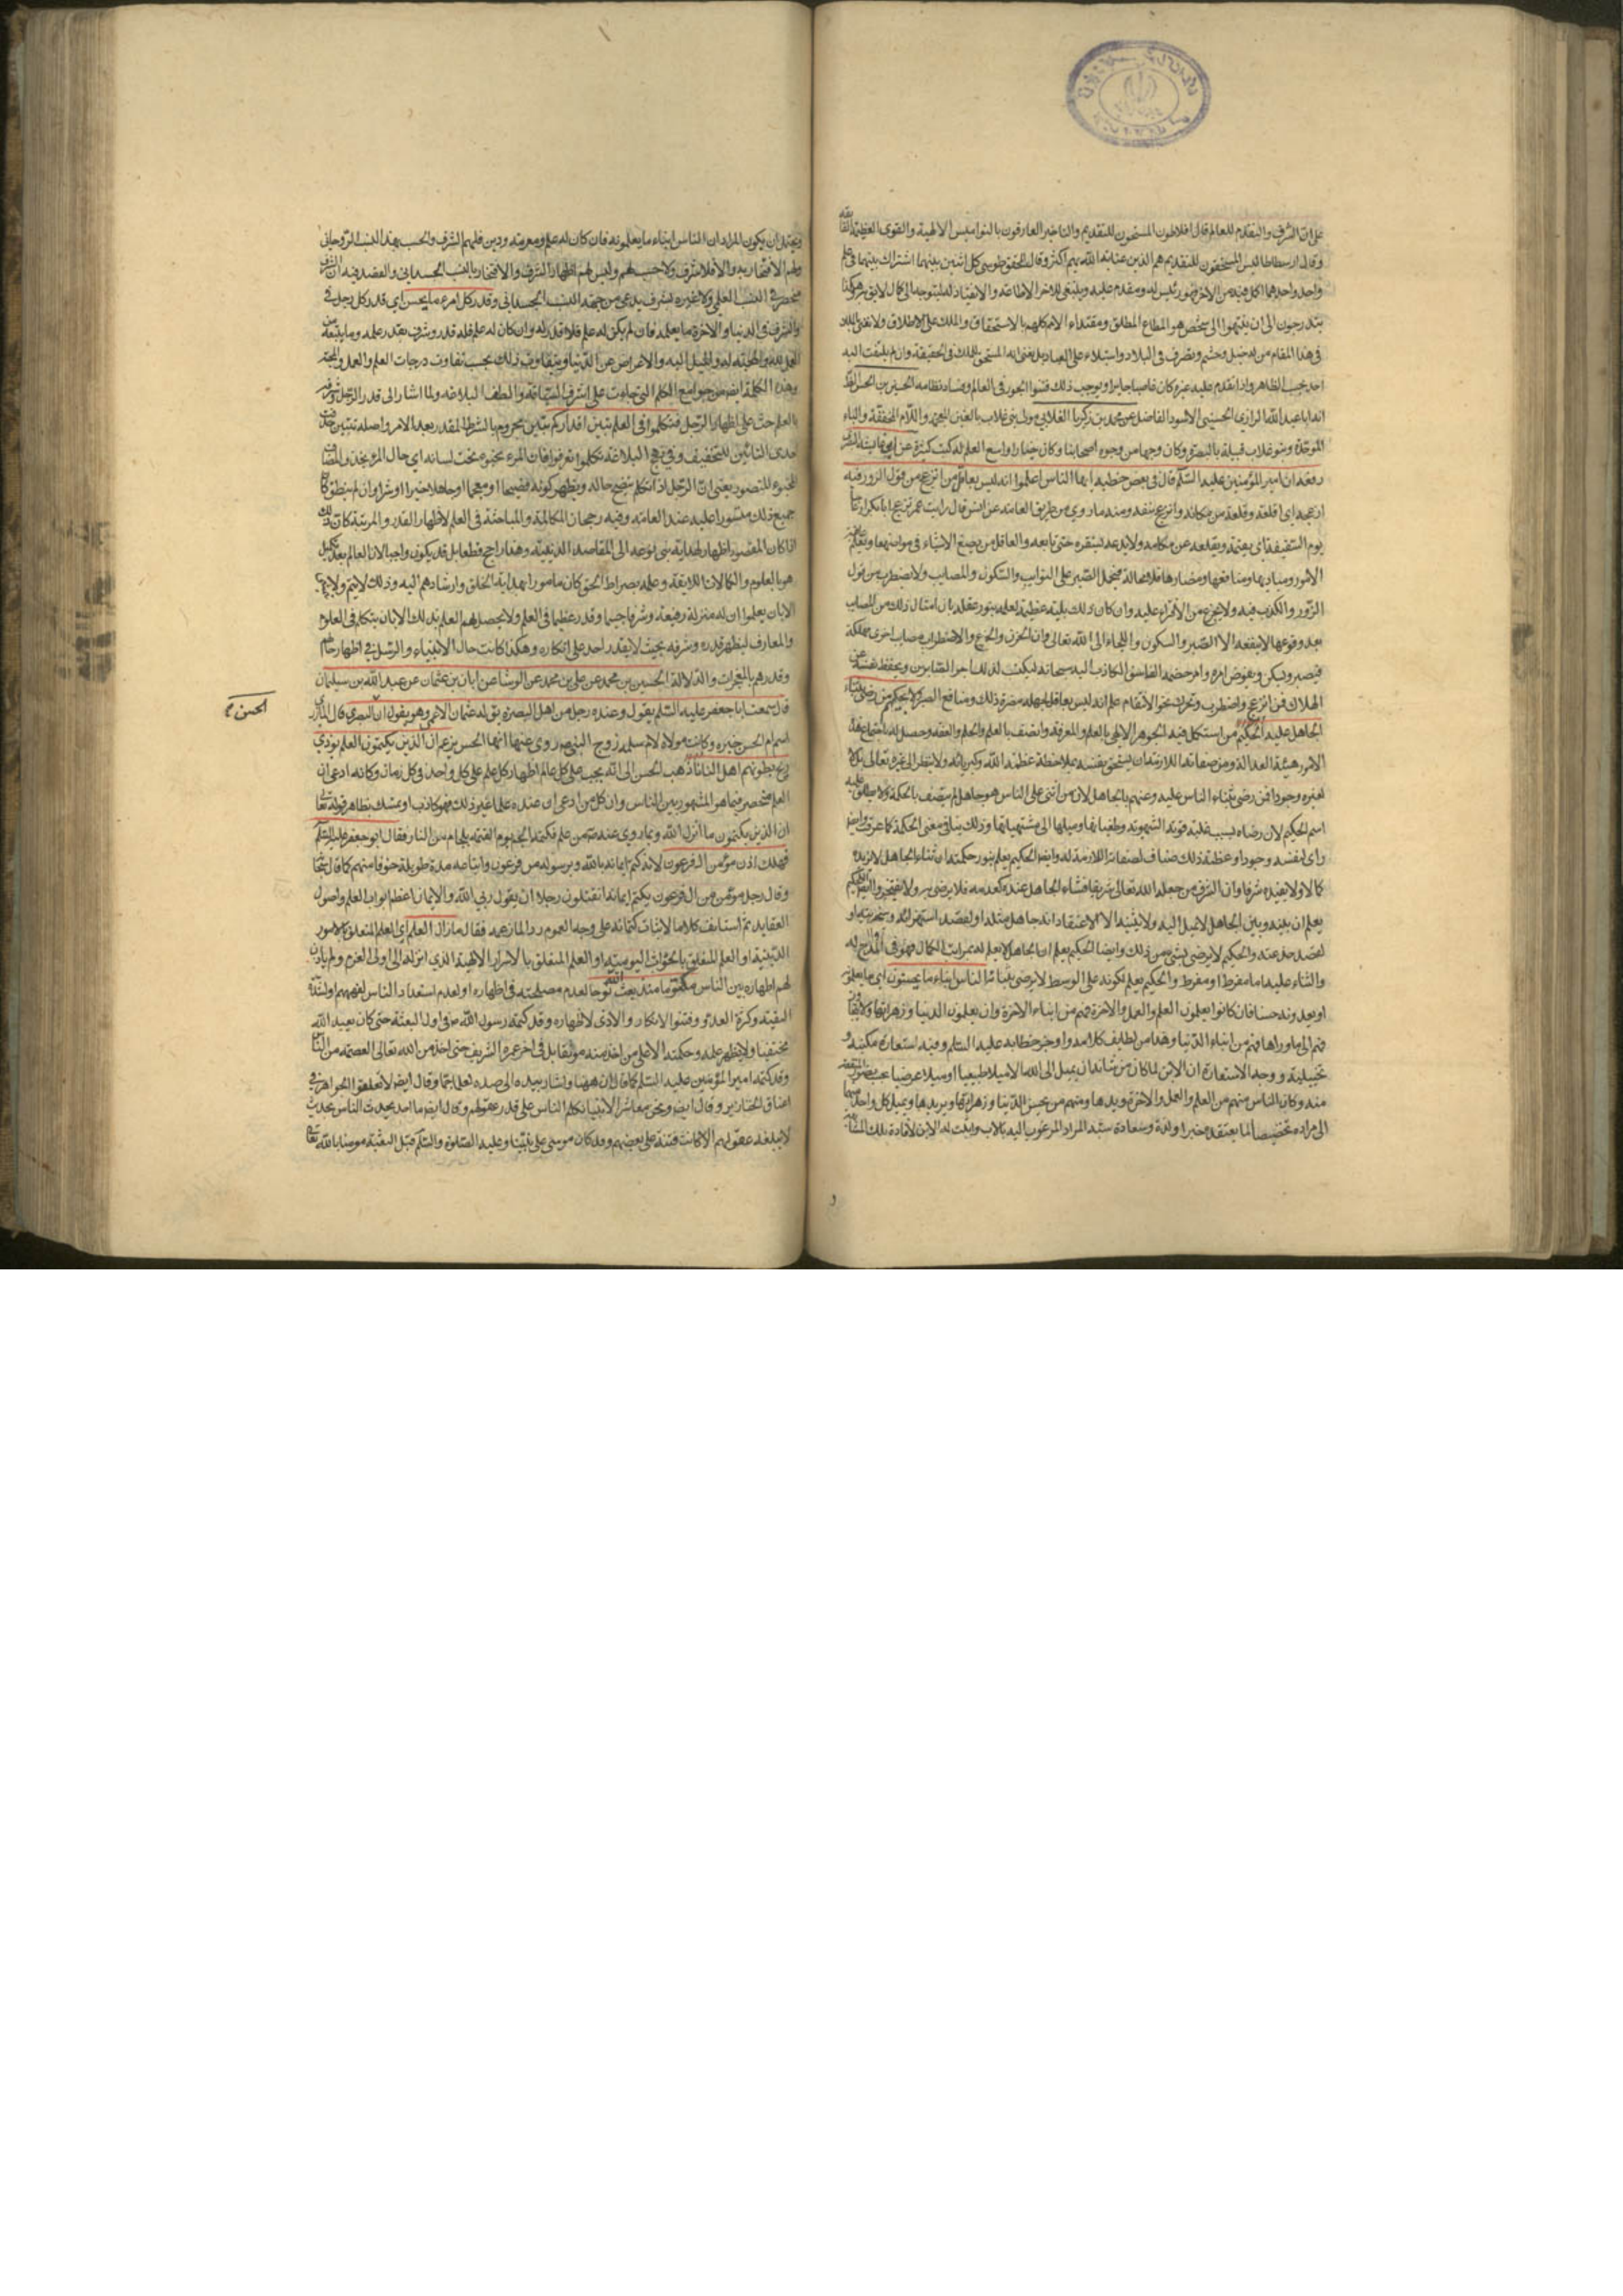 على ان الشرف والتقدم للعالم قال افلاطون المستحقون للتقديم والتاخير العارفون بالنواميس الالهية والقوى العظيمة
وقال ارسطاطاليس المستحقون للتقديم هم الذين عناية الله بهم اكثر وقال المحقق طوسي كل اثنين بينهما اشتراك في علم
واحد واحدهما اكمل فيه من الاخر فهو رئيس له ومقدم عليه وينبغي للاخر الاطاعة والانقياد له ليتوجه الى كمال لايق به وهكذا
يتدرجون الى ان ينتهوا الى شخص هو المطاع المطلق ومقتداء الامم كلهم بالاستحقاق والملك على الاطلاق ولا نعني بالملك
في هذا المقام من له خيل وحشم وتصرف في البلاد واستيلاء على العباد بل نعني انه المستحق للملك في الحقيقة وان لم يلتفت اليه
احد بحسب الظاهر واذا تقدم عليه غيره كان غاصبا جايرا ويوجب ذلك فشو الجور في العالم وفساد نظامه الحسين بن الحسن
ابا عبد الله الرازي الحسيني الاسود الفاضل عن محمد بن زكريا الغلابي مولى بني غلاب بالغين المعجمة واللام المخففة والباء
الموحدة وبنو غلاب قبيلة بالبصرة وكان وجها من وجوه اصحابنا وكان خيارا واسع العلم له كتب كثيرة عن ابن عايشة البصري
رفعه ان امير المؤمنين عليه السلم قال في بعض خطبه ايها الناس اعلموا انه ليس بعاقل من انزعج من قول الزور فيه
ازعجه اي اقلعه وقلعه من مكانه وانزعج بنفسه ومنه ما روي من طريق العامة عن انس قال رايت عمر يزعج ابا بكر ازعاجا
يوم السقيفة اي يقيمه ويقلعه عن مكانه ولا يدعه يستقره حتى بايعه والعاقل من يضع الاشياء في مواضعها ويعلم
الامور ومباديها ومنافعها ومضارها فلا محالة يتحمل الصبر على النوايب والسكون والمصايب ولا يضطرب من قول
الزور والكذب فيه ولا يجزع من الافتراء عليه وان كان ذلك بلية عظيمة لعلمه بنور عقله بان امثال ذلك من المصايب
بعد وقوعها لا ينفعه الا الصبر والسكون واللجاء الى الله تعالى وان الحزن والجزع والاضطراب مصايب اخرى مهلكة
فيصبر ويسكن ويفوض امره وامر خصمه الفاسق الكاذب اليه سبحانه ليكتب له بذلك اجر الصابرين ويحفظ نفسه عن
الهلاك فمن انزعج واضطرب وتحرك نحو الانتقام علم انه ليس بعاقل لجهله مضرة ذلك ومنافع الصبر ولا بحكيم من رضي بثناء
الجاهل عليه الحكيم من استكمل فيه الجوهر الالهي بالعلم والمعرفة واتصف بالعلم والحلم والعفة وحصل له باجتماع هذه
الامور هيئة العدالة ومن صفاته اللازمة ان يستحق بنفسه بملاحظة عظمة الله وكبريائه ولا ينظر الى غيره تعالى بل لا
لغيره وجودا فمن رضي بثناء الناس عليه وعنهم بالجاهل لان من اثنى على الناس هو جاهل لم يتصف بالحكمة ولا يطلق عليه
اسم الحكيم لان رضاه بسبب غلبة قوته الشهوية وطغيانها وميلها الى مشتهياتها وذلك ينافي معنى الحكمة كما عرفت وايضا
راى لنفسه وجودا وعظمة وذلك مناف لصفاته اللازمة له وايضا الحكيم يعلم بنور حكمته ان ثناء الجاهل لا يزيده
كمالا ولا يفيده شرفا وان الشريف من جعله الله تعالى شريفا فثناء الجاهل عنده كعدمه فلا يرضى به ولا يفتخر وايضا الحكيم
يعلم ان بينه وبين الجاهل لا ميل اليه ولا يثنيه الا لاعتقاد انه جاهل مثله او لقصد استهزائه وسخريته او
لقصد خدعته والحكيم لا يرضى بشيء من ذلك وايضا الحكيم يعلم ان الجاهل لا يعلم له بمراتب الكمال فهو في المدح له
والثناء عليه اما مفرط او مفرط والحكيم يعلم لكونه على الوسط لا يرضى بثنائه الناس ابناء ما يحسنون اي ما يعلمونه
او يعدونه حسنا فان كانوا يعلمون العلم والعمل والاخرة فهم من ابناء الاخرة وان يعلمون الدنيا وزهراتها ولا
فهم الى ما وراها فهم من ابناء الدنيا وهذا من لطايف كلامه واوجز خطابه عليه السلم وفيه استعارة مكنية و
تخييلية ووجه الاستعارة ان الابن لما كان من شانه ان يميل الى ابيه اما ميلا طبيعيا او ميلا عرضيا بحسب
منه وكان الناس منهم من العلم والعمل والاخرة ويريدها ومنهم من يحسن الدنيا وزهراتها ويريدها ويميل كل واحد منهما
الى مراده تخصيصا لما يعتقده خيرا ولذة وسعادة شبه المراد المرغوب اليه بالاب واثبت له الابن لافادة تلك المشابهة
ويحتمل ان يكون المراد ان الناس ابناء ما يعلمونه فان كان له علم ومعرفة ودين فلهم الشرف والحسب بهذا النسب الروحاني
ولهم الافتخار به والا فلا شرف ولا حسب لهم وليس لهم اظهار الشرف والافتخار بالنسب الجسماني والقصد فيه ان الشرف
منحصر في النسب العلمي ولا غيره بشرف يدعي من جهة النسب الجسماني وقدر كل امرء ما يحسن اي قدر كل رجل في
والشرف في الدنيا والاخرة ما يعلمه فان لم يكن له علم فلا قدر له وان كان له علم فله قدر وشرف بقدر علمه وما يتبعه من
العمل لله والمحبة له والميل اليه والاعراض عن الدنيا ويتفاوت ذلك بحسب تفاوت درجات العلم والعمل والمحبة
وهذه الكلمة ايضا من جوامع الكلم التي جاءت على اشرف السياقة والطف البلاغة ولما اشار الى قدر الرجل وشرفه
بالعلم حث على اظهار الرجل فتكلموا في العلم تبين اقداركم تبين مجزوم بالشرط المقدر بعد الامر واصله تتبين حذفت
احدى التائين للتخفيف وفي نهج البلاغة تكلموا تعرفوا فان المرء مخبوء تحت لسانه اي حال المرء
مخبوء للتصور يعني ان الرجل اذا تكلم يتضح حاله ويظهر كونه فصيحا او معجما او جاهلا خيرا او شرا وان لم ينطق كان
جميع ذلك مستورا عليه عند العامة وفيه رجحان المكالمة والمباحثة في العلم لاظهار القدر والمرتبة كان ذلك
اذا كان المقصود اظهار لهداية بني نوعه الى المقاصد الدينية وهذا راجح قطعا بل قد يكون واجبا لان العالم بعد تكميل
هو بالعلوم والكمالات اللايقة وعلمه بصراط الحق كان مامورا بهداية الخلق وارشادهم اليه وذلك لا يتم ولا
الا بان يعلموا ان له منزلة رفيعة وشرفا جسيما وقدرا عظيما في العلم ولا يحصل لهم العلم بذلك الا بان يتكلم في العلوم
والمعارف ليظهر قدره وشرفه بحيث لا يقدر احد على انكاره وهكذا كانت حال الانبياء والرسل في اظهار حالهم
وقدرهم بالمعجزات والدلالة الحسين بن محمد عن علي بن محمد عن الوشا عن ابان بن عثمان عن عبد الله بن سليمان
قال سمعت ابا جعفر عليه السلم يقول وعنده رجل من اهل البصرة يق له عثمان الاعمى وهو يقول ان البصري قال المازري
اسم ام الحسن خيرة وكانت مولاة لام سلمة زوج النبي ص روى عنها ابنها الحسن يزعم ان الذين يكتمون العلم يؤذي
ريح بطونهم اهل النار ذهب الحسن الى انه يجب على كل عالم اظهار كل علم على كل واحد في كل زمان وكانه ادعى ان
العلم منحصر فيما هو المشهور بين الناس وان كل من ادعى ان عنده علما غير ذلك فهو كاذب او تمسك بظاهر قوله تعالى
ان الذين يكتمون ما انزل الله وبما روي عنه ص من علم فكتمه الجم يوم القيمة بلجام من النار فقال ابو جعفر عليه السلم
فهلك اذن مؤمن ال فرعون لانه كتم ايمانه بالله وبرسوله من فرعون واتباعه مدة طويلة خوفا منهم كما قال تعالى
وقال رجل مؤمن من ال فرعون يكتم ايمانه اتقتلون رجلا ان يقول ربي الله والايمان اعظم ابواب العلم واصول
العقايد ثم استانف كلاما لاثبات كتمانه على وجه العموم ردا لما زعمه فقال ما زال العلم اي العلم المتعلق بالامور
الدينية او العلم المتعلق بالحوادث اليومية او العلم المتعلق بالاسرار الالهية الذي انزله الى اولي العزم ولم ياذن
لهم اظهاره بين الناس مكتوما منذ بعث الله نوحا لعدم مصلحته في اظهاره او لعدم استعداد الناس لفهمهم ولشدة
التقية وكثرة العدو وفشو الانكار والاذى لاظهاره وقد كتمه رسول الله ص في اول البعثة حتى كان يعبد الله
مختفيا ولا يظهر علمه وحكمته الا على من اخذ منه موثقا بل في اخر عمره الشريف حتى اخذ من الله تعالى العصمة من الناس
وقد كتمه امير المؤمنين عليه السلم كما قال ان ههنا واشار بيده الى صدره لعلما جما وقال ايضا لا تعلقوا الجواهر في
اعناق الخنازير وقال ايضا ونحن معاشر الانبياء نكلم الناس على قدر عقولهم وقال ايضا ما احد يحدث الناس بحديث
لا يبلغه عقولهم الا كانت فتنة على بعضهم وقد كان موسى على نبينا وعليه الصلوة والسلم قبل البعثة مومنا بالله تعالى
الحسن